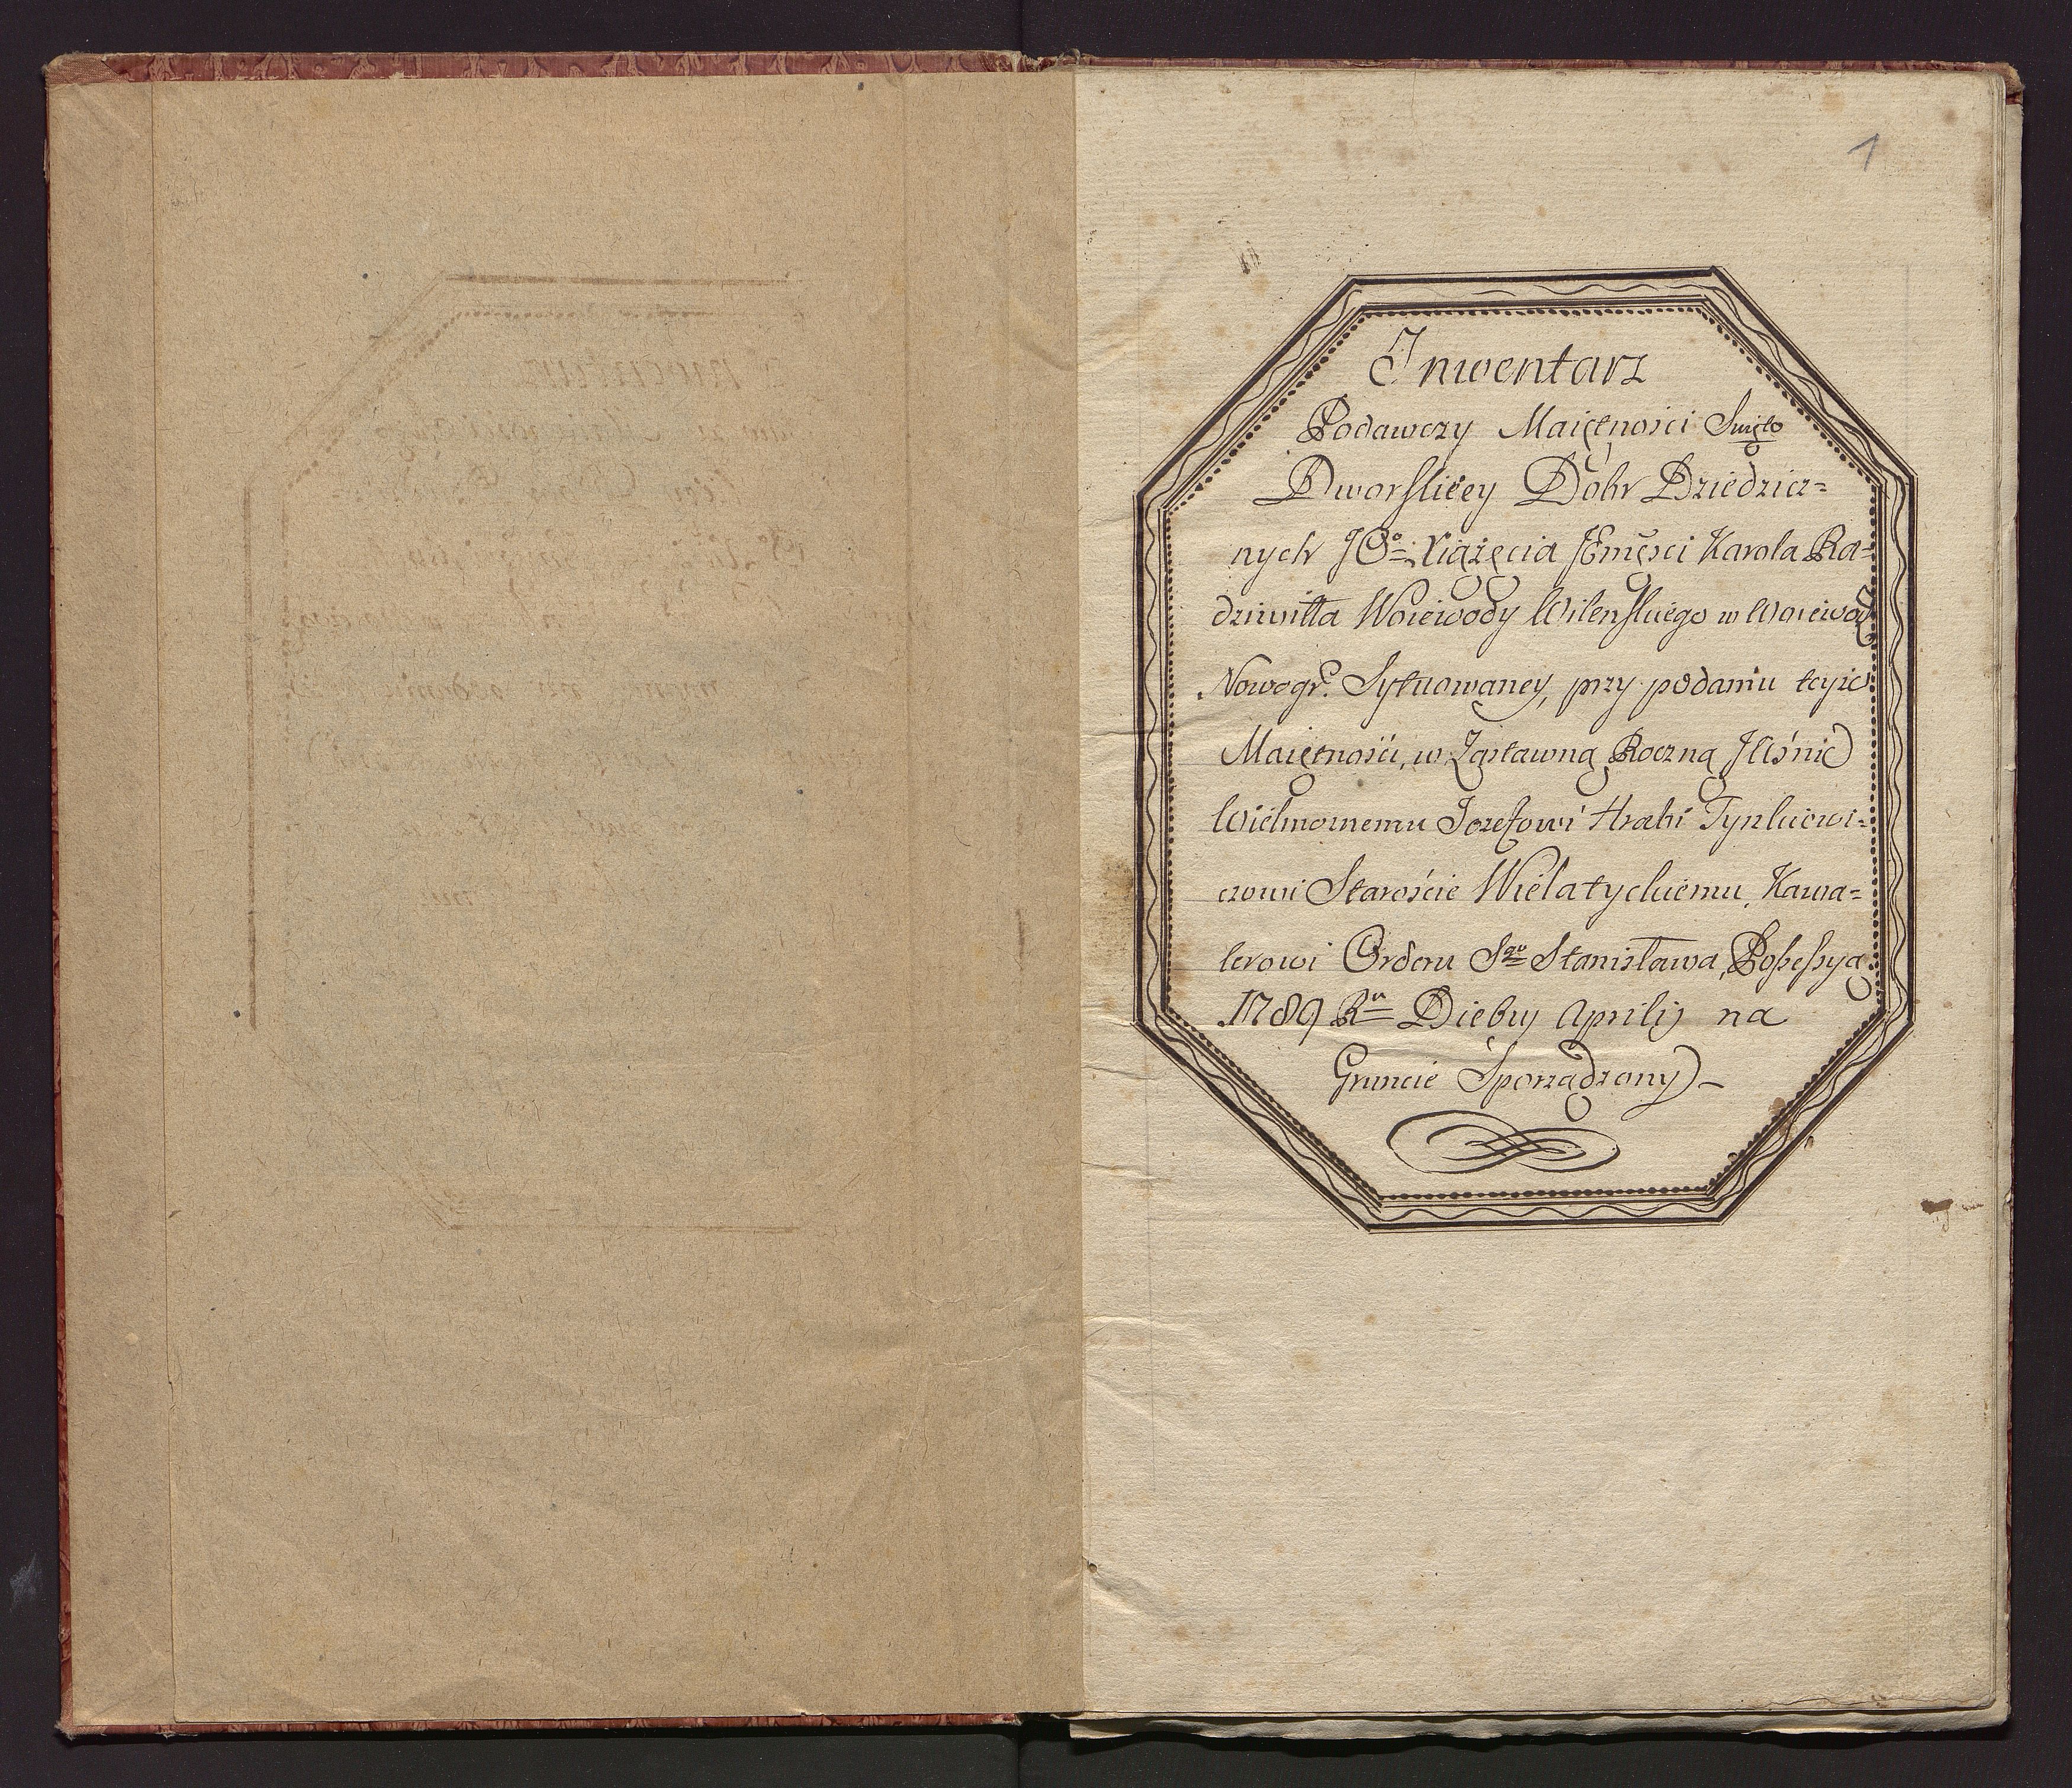 1
Inwentarz
Podawczy Maiętnosci Swięto
Dworskiey Dobr Dziedzicz=
nych JOo Xiążęcia JEmści Karola Ra=
dziwiłła Woiewody Wilenskiego w Woiewod:
Nowogr. Sytuowaney, przy podaniu teyże
Maiętnośći, w Zastawną Roczną JWśnie
Wielmożnemu Jozefowi Hrabi Tyszkiewi=
czowi Starośćie Wielatyckiemu, Kawa=
lerowi Orderu Sgo Stanisława, Possessyą
1789 Ru Diebus Aprilis na
Gruncie Sporządzony